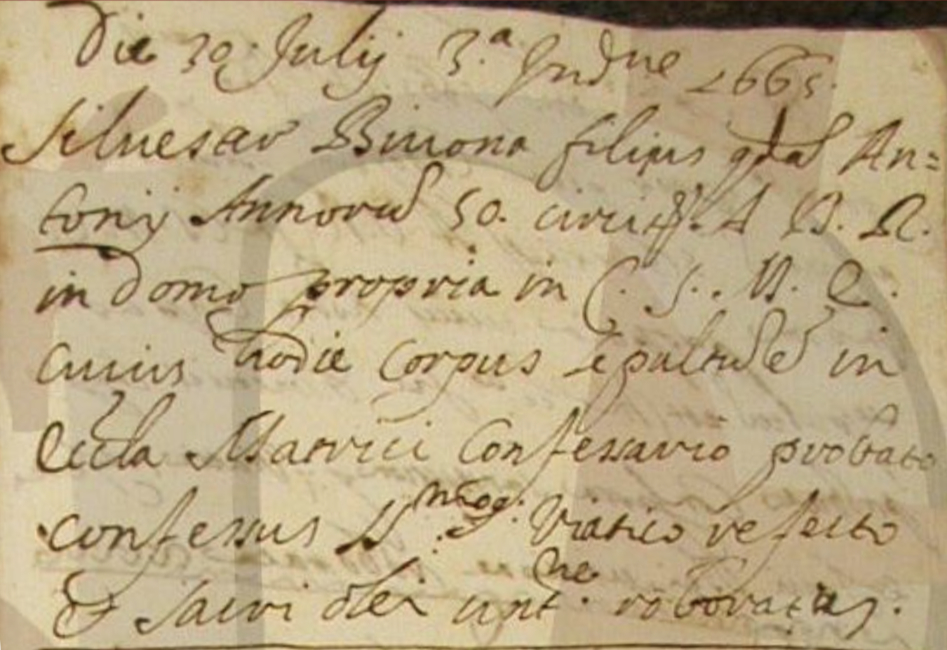 Die 30 Julij 3.ª Indne 1665.
Siluester Binona filius qdā An=
tonij Annorū 50. circiter. A D. R.
in domo propria in C. S. M. E.
cuius hodie corpus sepultū ē in
Eccla Matrici Confessario probato
confessus SS. Viatico refecto
& sacri olei unt.ne roboratus.